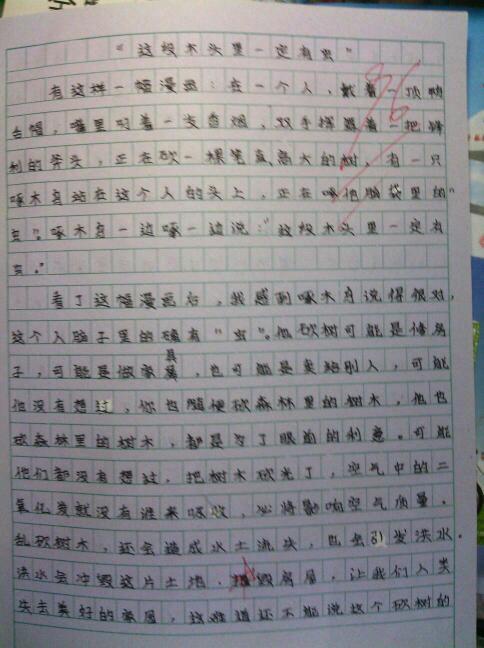 “这段木头里一定有虫”
有这样一幅漫画：在一个人，戴着一顶鸭
舌帽，嘴里叼着一支香烟，双手挥舞着一把锋
利的斧头，正在砍一棵笔直高大的树，有一只
啄木鸟站在这个人的头上，正在啄他脑袋里的“
虫”。啄木鸟一边啄一边说：“这段木头里一定有
虫。”
看了这幅漫画后，我感到啄木鸟说得很对，
这个人脑子里的确有“虫”。他砍树可能是修房
子，可能是做家具，也可能是卖给别人，可能
他没有想过，你也随便砍森林里的树木，他也
砍森林里的树木，都是为了眼前的利息。可能
他们都没有想过，把树木砍光了，空气中的二
氧化炭就没有谁来吸收，必将影响空气质量。
乱砍树木，还会造成水土流失，也会引发洪水。
洪水会冲毁这片土地，毁房屋，让我们人类
失去美好的家园，这难道还不能说这个砍树的